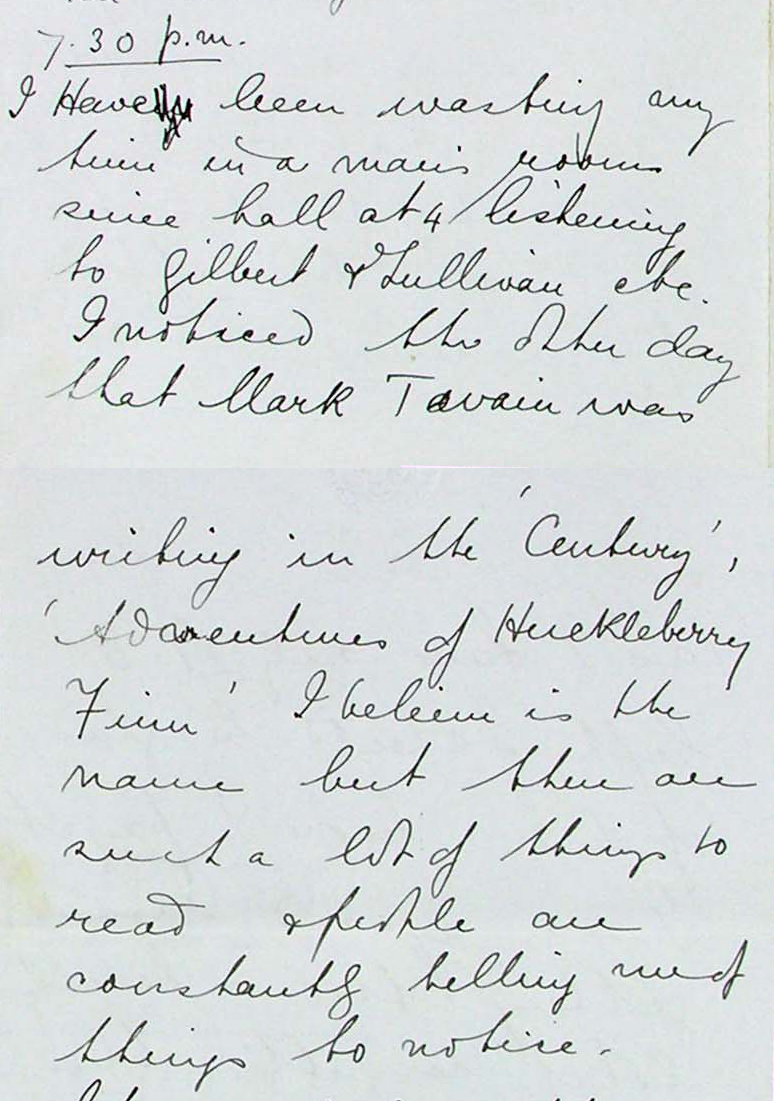 7.30 p.m.
I Have been wasting my
time in a man's rooms
since hall at 4 listening
to Gilbert & Sullivan etc.
I noticed the other day
that Mark Twain was
writing in the 'Century',
'Adventures of Huckleberry
Finn' I believe is the
name but there are
such a lot of things to
read & people are
constantly telling me of
things to notice.